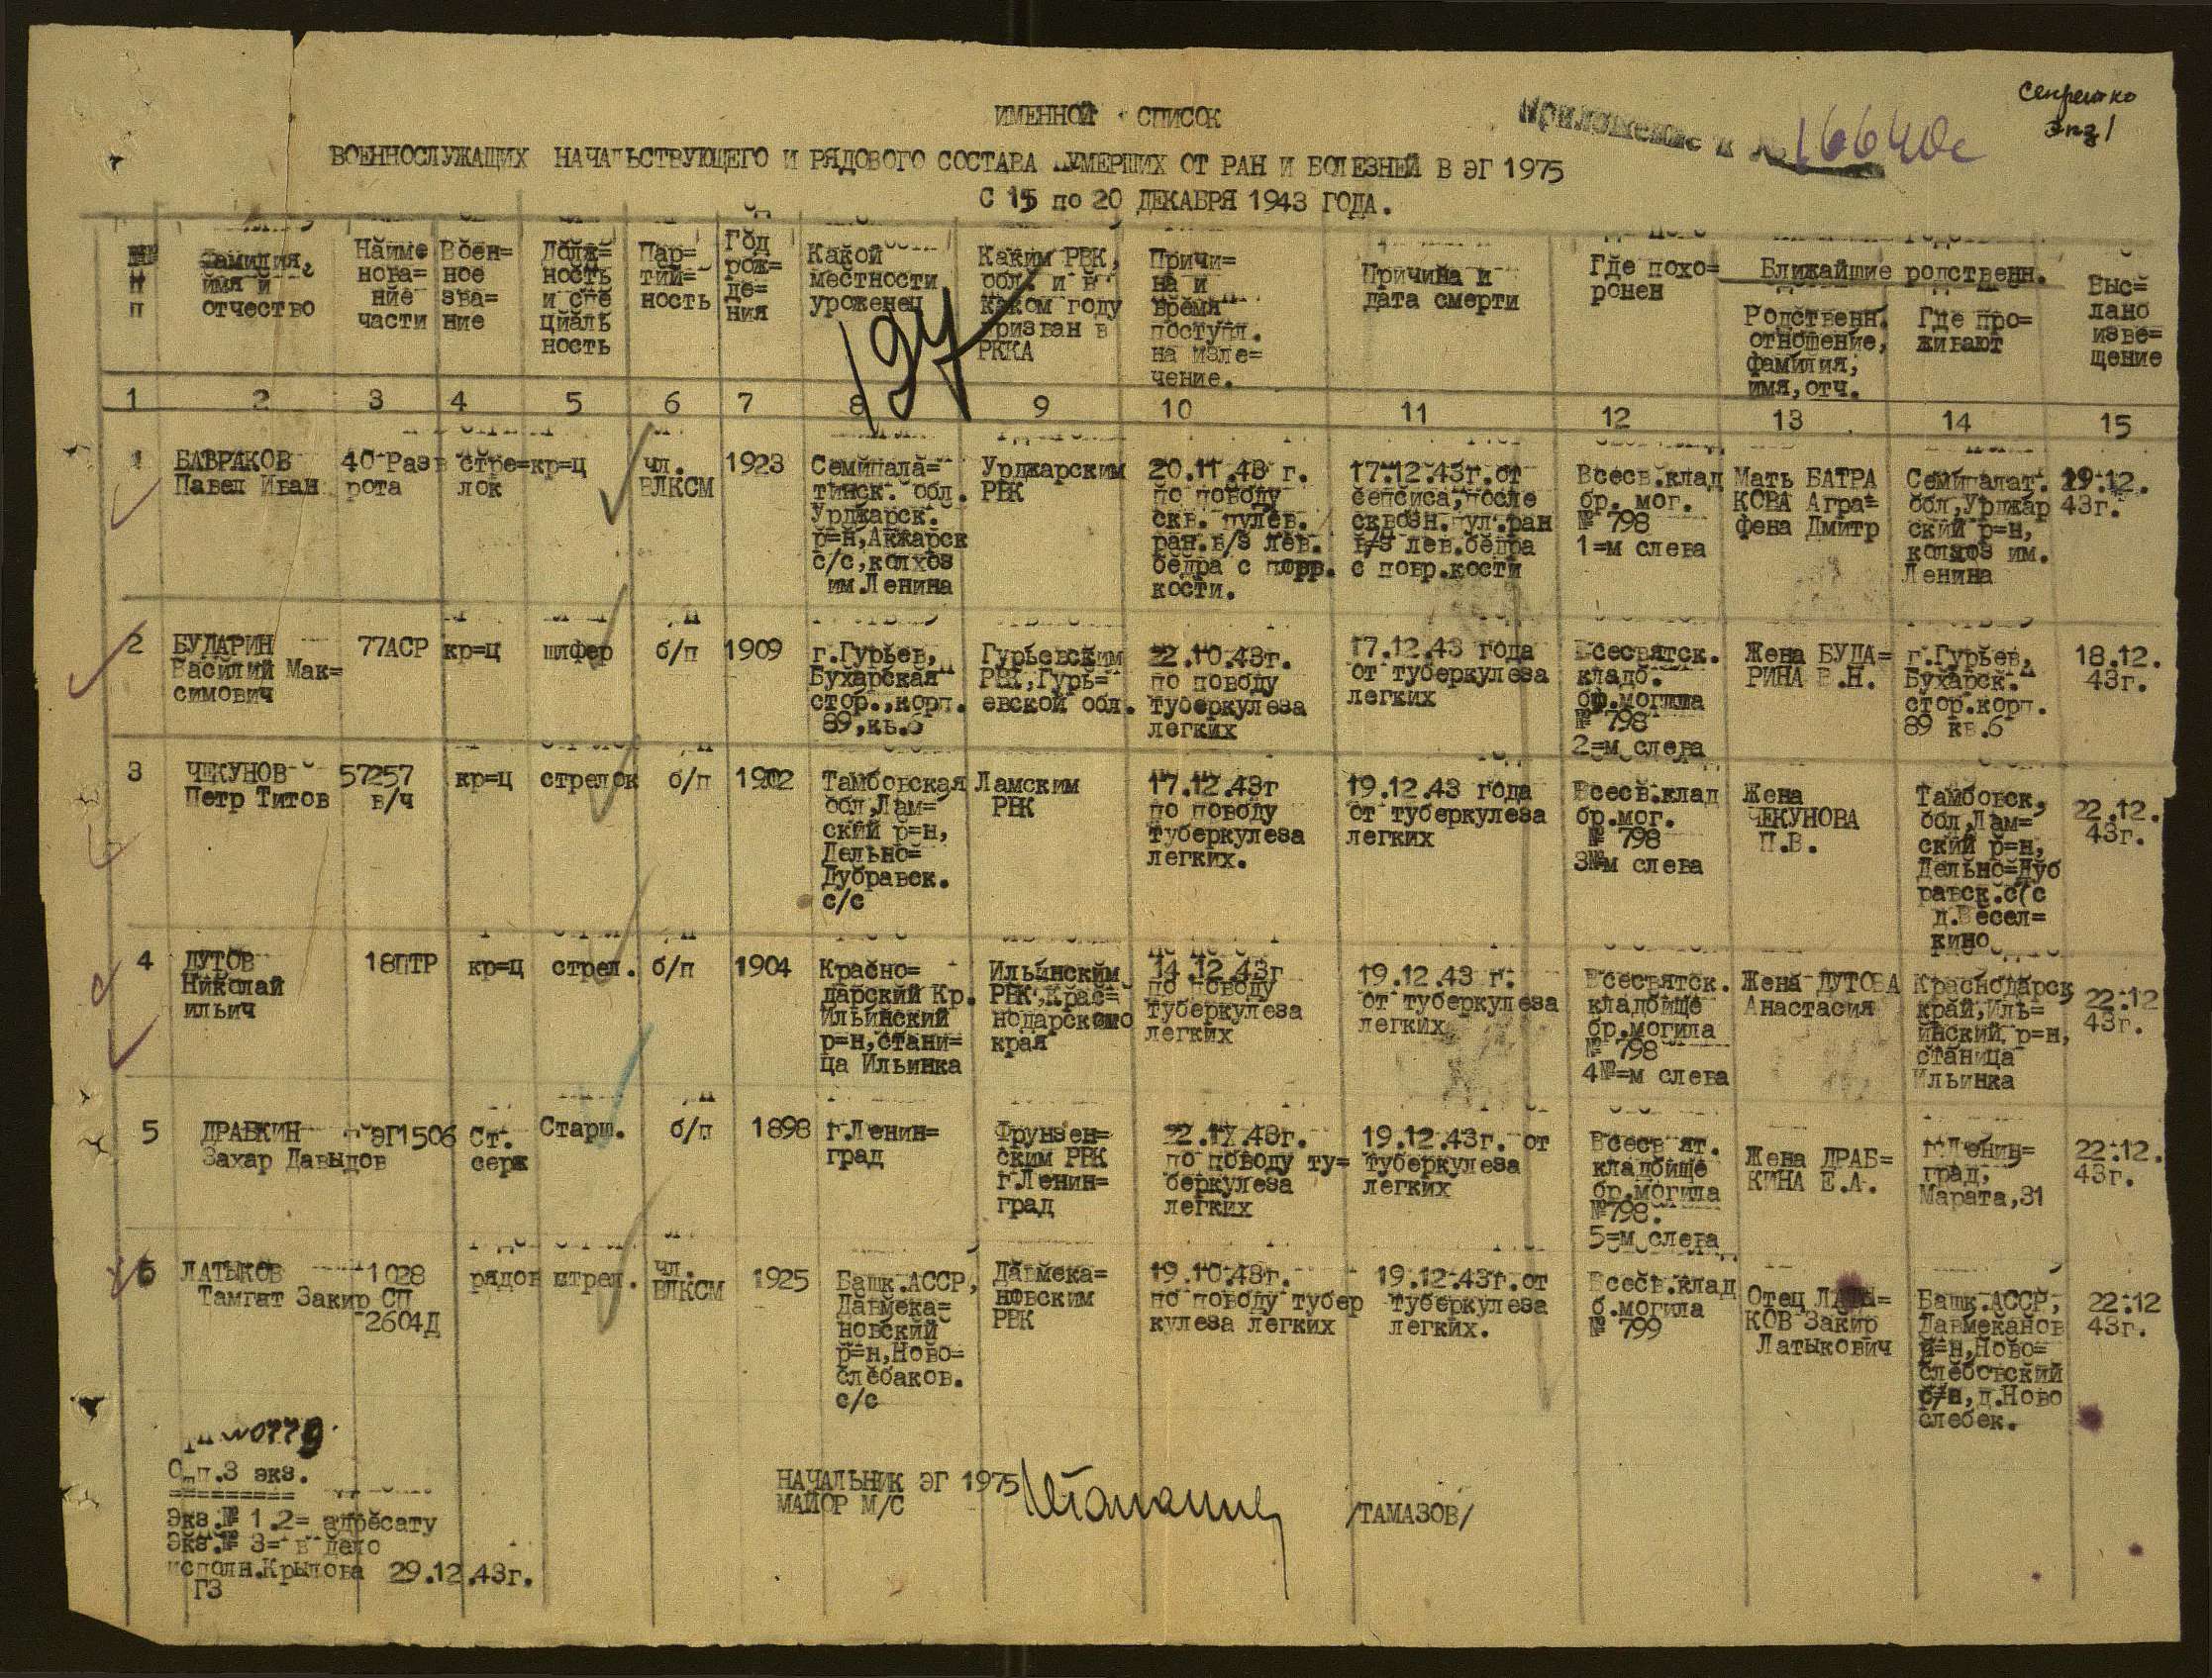 секретно
экз 1
Приложение к № 16640с
ИМЕННОЙ СПИСОК
ВОЕННОСЛУЖАЩИХ НАЧАЛЬСТВУЮЩЕГО И РЯДОВОГО СОСТАВА УМЕРШИХ ОТ РАН И БОЛЕЗНЕЙ В ЭГ 1975
С 15 по 20 ДЕКАБРЯ 1943 ГОДА.
№№
п
п
Фамилия,
имя и
отчество
Наиме
нова=
ние
части
Воен=
ное
зва=
ние
Долж=
ность
и спе
циаль
ность
Пар=
тий=
ность
Год
рож=
де=
ния
Какой
местности
уроженец
Каким РВК,
обл. и в
каком году
призван в
РККА
Причи=
на и
время
поступл.
на изле=
чение.
Причина и
дата смерти
Где похо=
ронен
Ближайшие родственн.
Родственн.
отношение,
фамилия,
имя, отч.
Где про=
живают
Выс=
лано
изве=
щение
197
1 2 3 4 5 6 7 8 9 10 11 12 13 14 15
1
БАТРАКОВ
Павел Иван
40 Разв
рота
стре=
лок
кр=ц
чл.
ВЛКСМ
1923
Семипала=
тинск. обл.
Урджарск.
р=н, Акжарск
с/с, колхоз
им.Ленина
Урджарским
РВК
20.11.43 г.
по поводу
скв. пулев.
ран. в/3 лев.
бедра с повр.
кости.
17.12.43г. от
сепсиса, после
сквозн.пул.ран
в/3 лев.бедра
с повр.кости
Всесв.клад
бр. мог.
№ 798
1=м слева
Мать БАТРА
КОВА Агра=
фена Дмитр
Семипалат.
обл, Урджар
ский р=н,
колхоз им.
Ленина
19.12.
43г.
2
БУДАРИН
Василий Мак=
симович
77АСР
кр=ц
шофер
б/п
1909
г.Гурьев,
Бухарская
стор., корп.
89, кв.6
Гурьевским
РВК, Гурь=
евской обл.
22.10.43г.
по поводу
туберкулеза
легких
17.12.43 года
от туберкулеза
легких
Всесвятск.
кладб.
бр.могила
№ 798
2=м слева
Жена БУДА=
РИНА В.Н.
г.Гурьев,
Бухарск.
стор.корп.
89 кв.6
18.12.
43г.
3
ЧЕКУНОВ
Петр Титов
57257
в/ч
кр=ц
стрелок
б/п
1902
Тамбовская
обл, Лам=
ский р=н,
Дельно=
Дубравск.
с/с
Ламским
РВК
17.12.43г
по поводу
туберкулеза
легких.
19.12.43 года
от туберкулеза
легких
Всесв.клад
бр.мог.
№ 798
3№м слева
Жена
ЧЕКУНОВА
П.В.
Тамбовск,
обл, Лам=
ский р=н,
Дельно=Дуб
равск.с/с
д.Весел=
кино
22.12.
43г.
4
ДУТОВ
Николай
ильич
18ПТР
кр=ц
стрел.
б/п
1904
Красно=
дарский Кр.
Ильинский
р=н, стани=
ца Ильинка
Ильинским
РВК, Крас=
нодарского
края
14.12.43г
по поводу
туберкулеза
легких
19.12.43 г.
от туберкулеза
легких
Всесвятск.
кладбище
бр.могила
№ 798
4№=м слева
Жена ДУТОВА
Анастасия
Краснодарск
край, Иль=
инский р=н,
станица
Ильинка
22.12
43г.
5
ДРАБКИН
Захар Давыдов
ЭГ1506
Ст.
серж
Старш.
б/п
1898
г.Ленин=
град
Фрунзен=
ским РВК
г.Ленин=
град
по поводу ту=
беркулеза
легких
19.12.43г. от
туберкулеза
легких
Всесвят.
кладбище
бр.могила
№798.
5=м слева
Жена ДРАБ=
КИНА Е.А.
г.Ленин=
град,
Марата, 31
22.12.
43г.
6
ЛАТЫКОВ
Тамгат Закир
1028
СП
2604Д
рядов
стрел.
чл.
ВЛКСМ
1925
Башк.АССР,
Давмека=
новский
р=н, Ново=
слебаков.
с/с
Давмека=
новским
РВК
19.10.43г.
по поводу тубер
кулеза легких
19.12.43г. от
туберкулеза
легких.
Всесв.клад
б.могила
№ 799
Отец ЛАТЫ=
КОВ Закир
Латыкович
Башк.АССР,
Давмеканов
р=н, Ново=
слебовский
с/с, д.Ново
слебек.
22.12
43г.
Отп.3 экз.
=========
Экз.№ 1.2= адресату
Экз.№ 3= в дело
исполн.Крылова 29.12.43г.
ГЗ
НАЧАЛЬНИК ЭГ 1975
МАЙОР М/С
/ТАМАЗОВ/